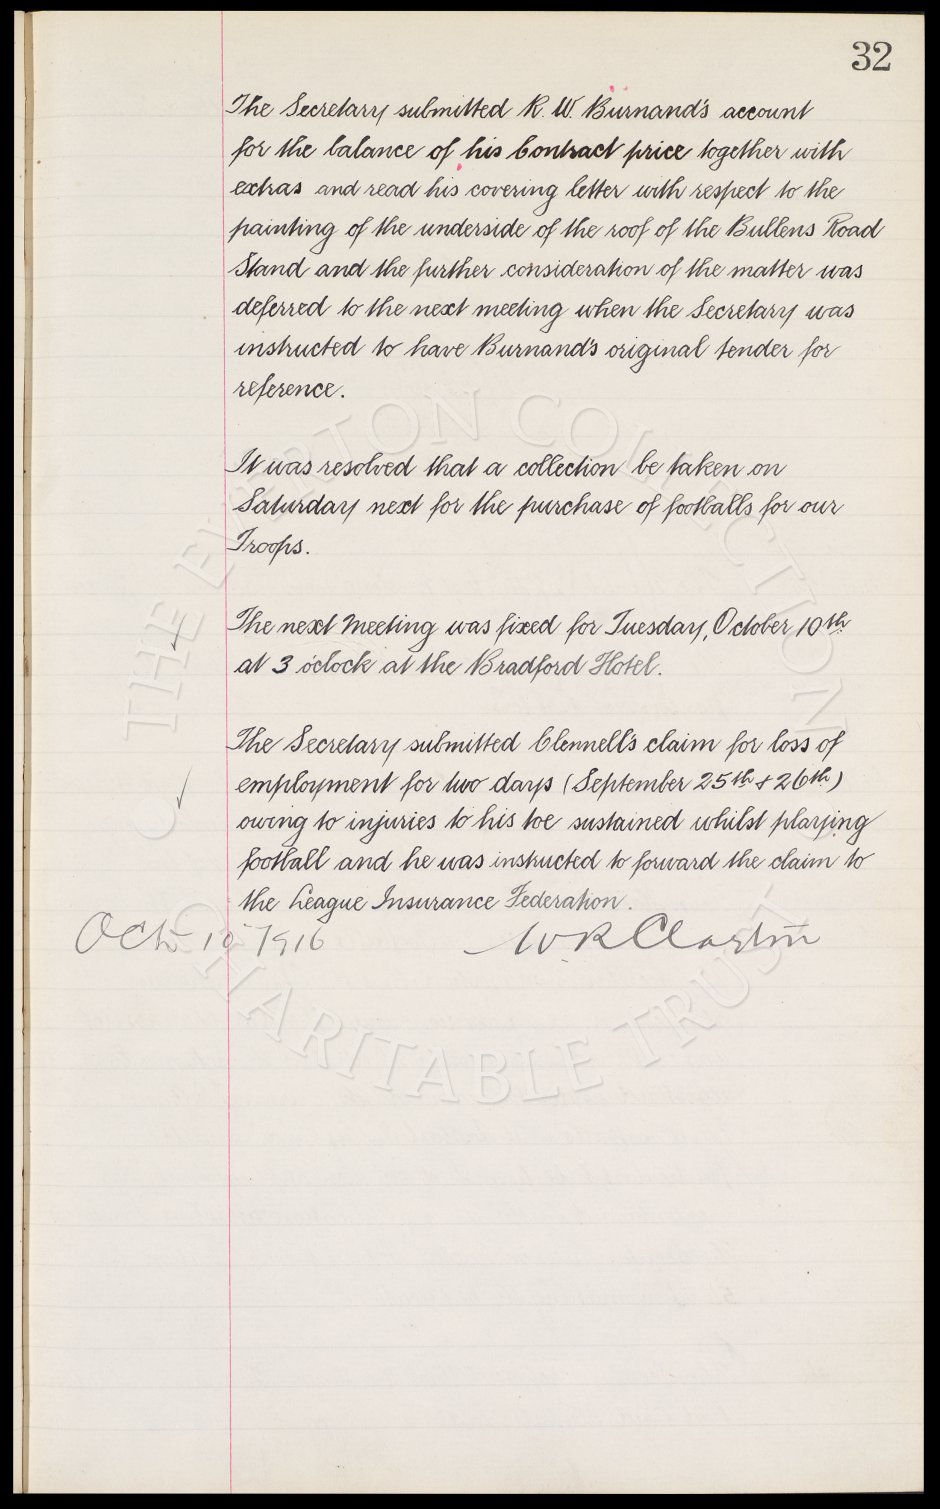 32
The Secretary submitted R. W. Burnand's account
for the balance of his Contract price together with
extras and read his covering letter with respect to the
painting of the underside of the roof of the Bullens Road
Stand and the further consideration of the matter was
deferred to the next meeting when the Secretary was
instructed to have Burnand's original tender for
reference.
It was resolved that a collection be taken on
Saturday next for the purchase of footballs for our
Troops.
The next Meeting was fixed for Tuesday, October 10th
at 3 o'clock at the Bradford Hotel.
The Secretary submitted Clennell's claim for loss of
employment for two days (September 25th & 26th)
owing to injuries to his toe sustained whilst playing
football and he was instructed to forward the claim to
the League Insurance Federation.
Oct 10 1916 W R Clayton
THE EVERTON COLLECTION
CHARITABLE TRUST